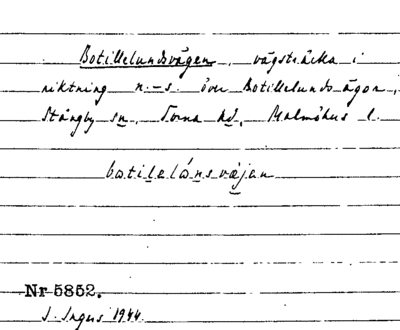 Botillelundsvägen, vägsträcka i
riktning n.-s. över Botillelunds ägor,
Stångby sn, Torna hd, Malmöhus l.
botilelånsväjan
Nr 5852.
J. Ingers 1944.